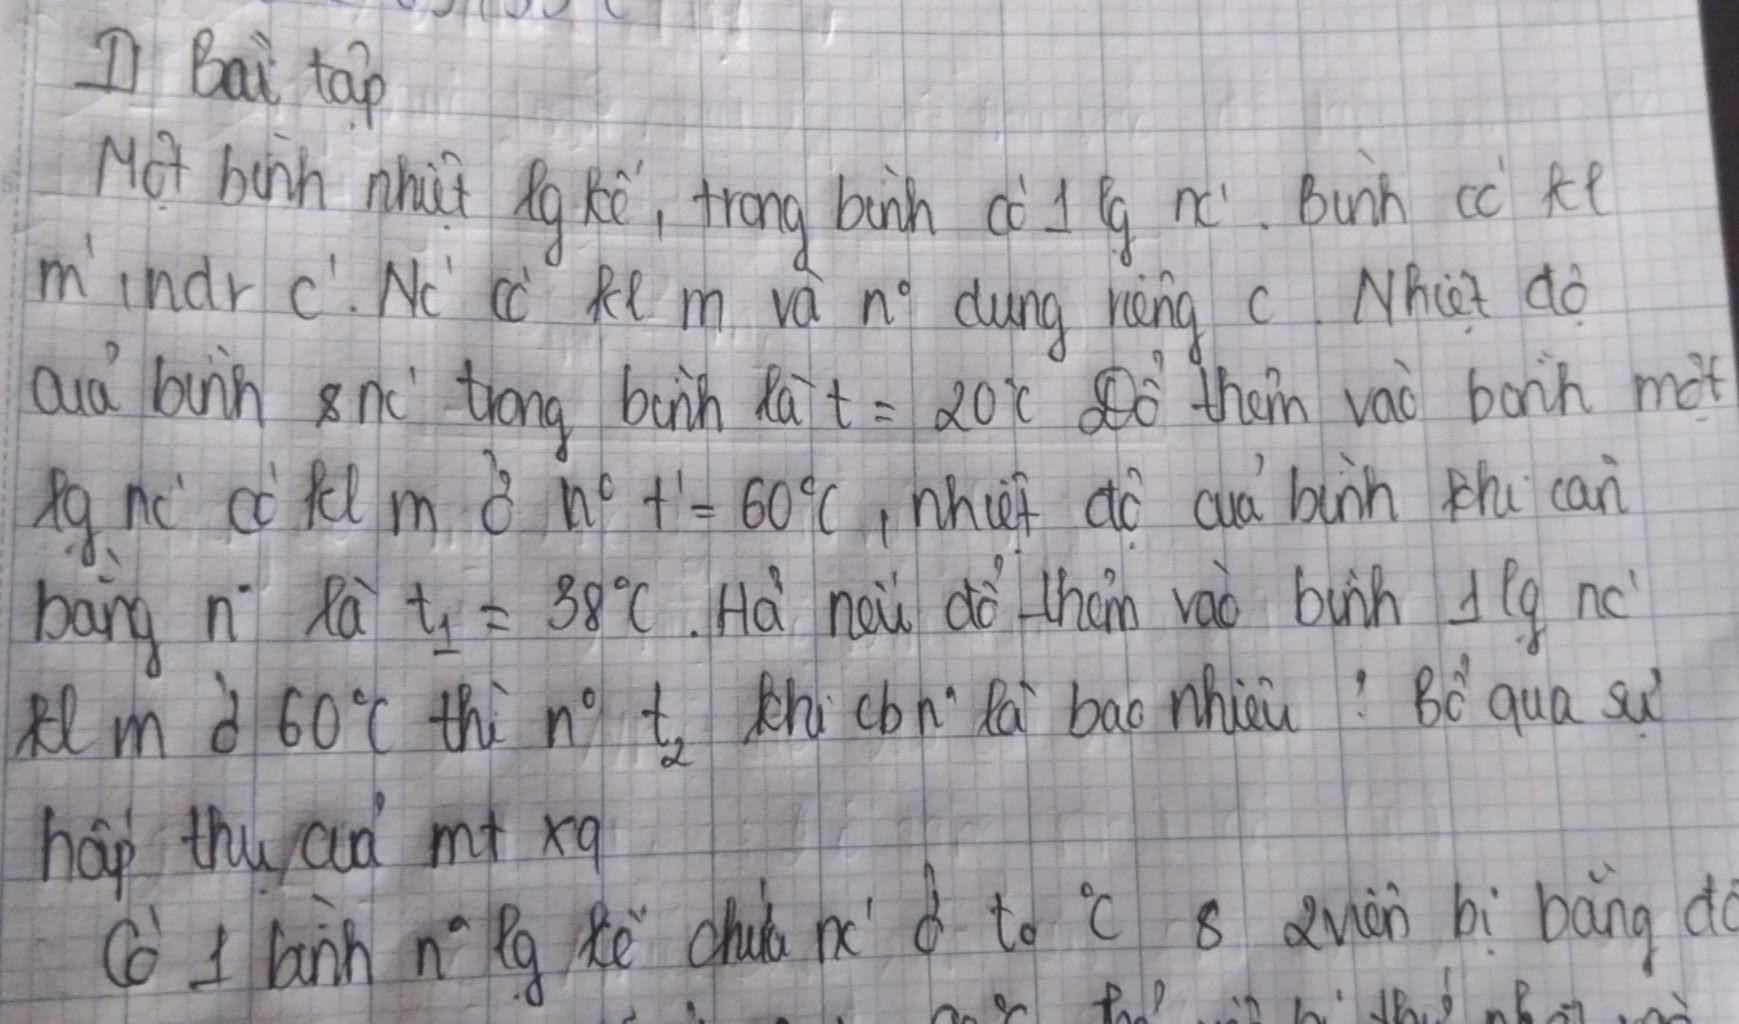 II Bài tập
Một bình nhiệt lg kế, trong bình có 1 lg nc'. Bình có kl
m', ndr c'. Nc' có kl m và n° dung riêng c. Nhiệt độ
của bình & nc' trong bình là t = 20°C Đổ thêm vào bình một
lg nc' có kl m ở n° t' = 60°C, nhiệt độ của bình khi cân
bằng n° là t₁ = 38°C. Hỏi nếu đổ thêm vào bình 1 lg nc'
kl m ở 60°C thì n° t₂ khi cb n° là bao nhiêu? Bỏ qua sự
hấp thụ của mt xq
Có 1 bình n° lg kế chứa nc' ở t₀ °C & 2 viên bi bằng